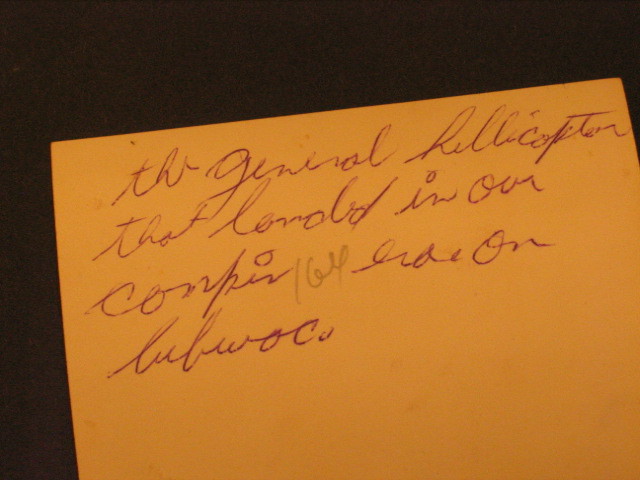 the general hellicopter
that landed in our
compin 164 erae on
bibwoc.